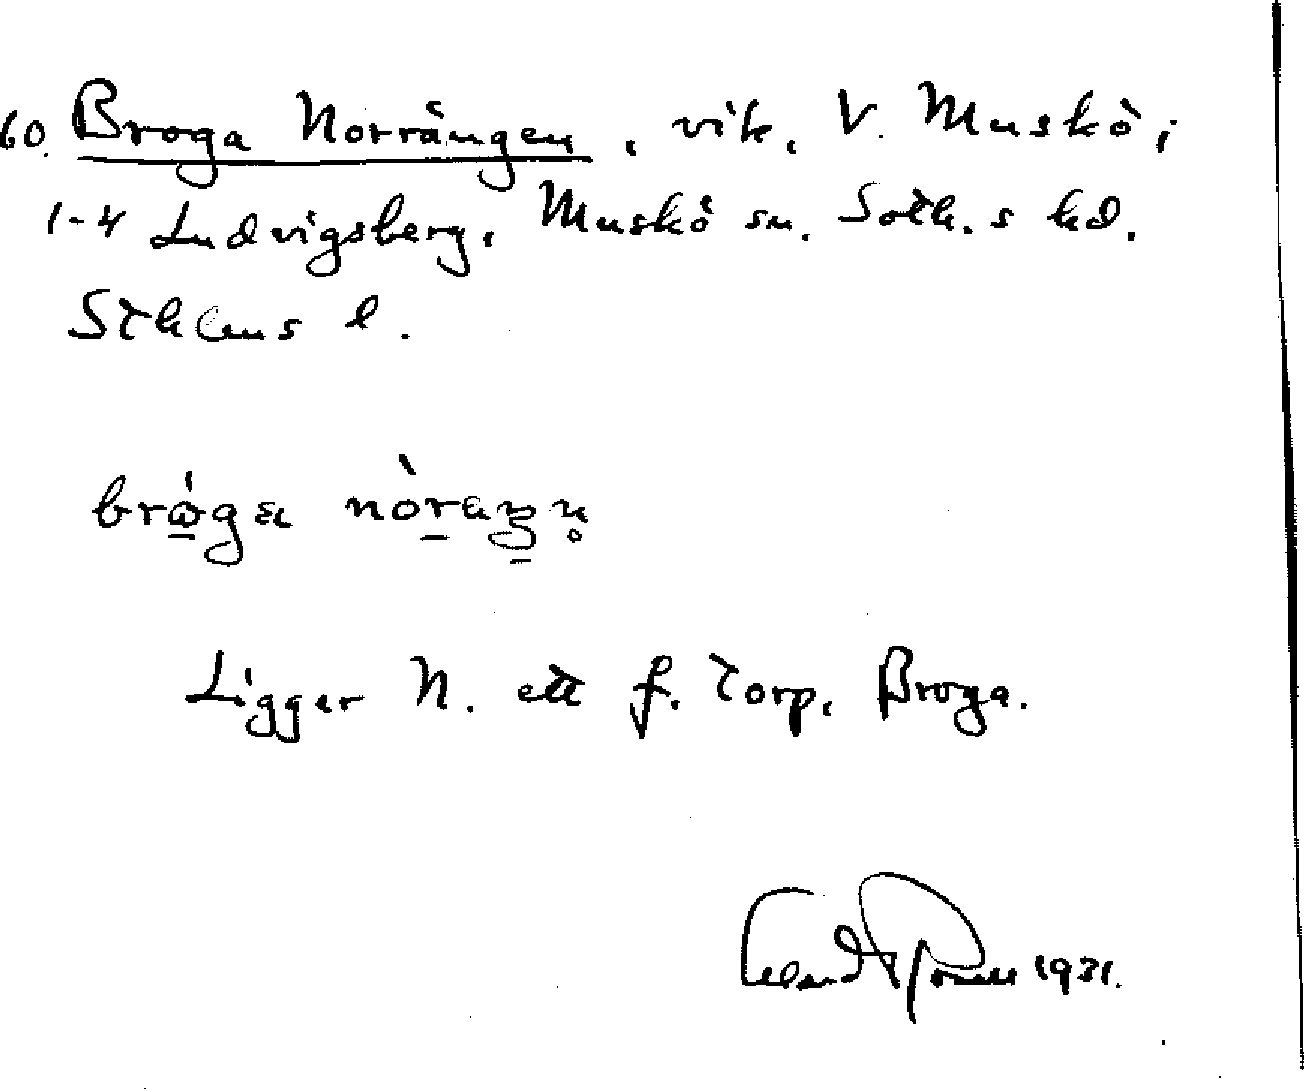 60. Broga Norrängen, vik, V. Muskö,
1-4 Ludvigsberg, Muskö sn. Soth.s hd.
Sthlms l.
Ligger N. ett f. torp, Broga.
1931.